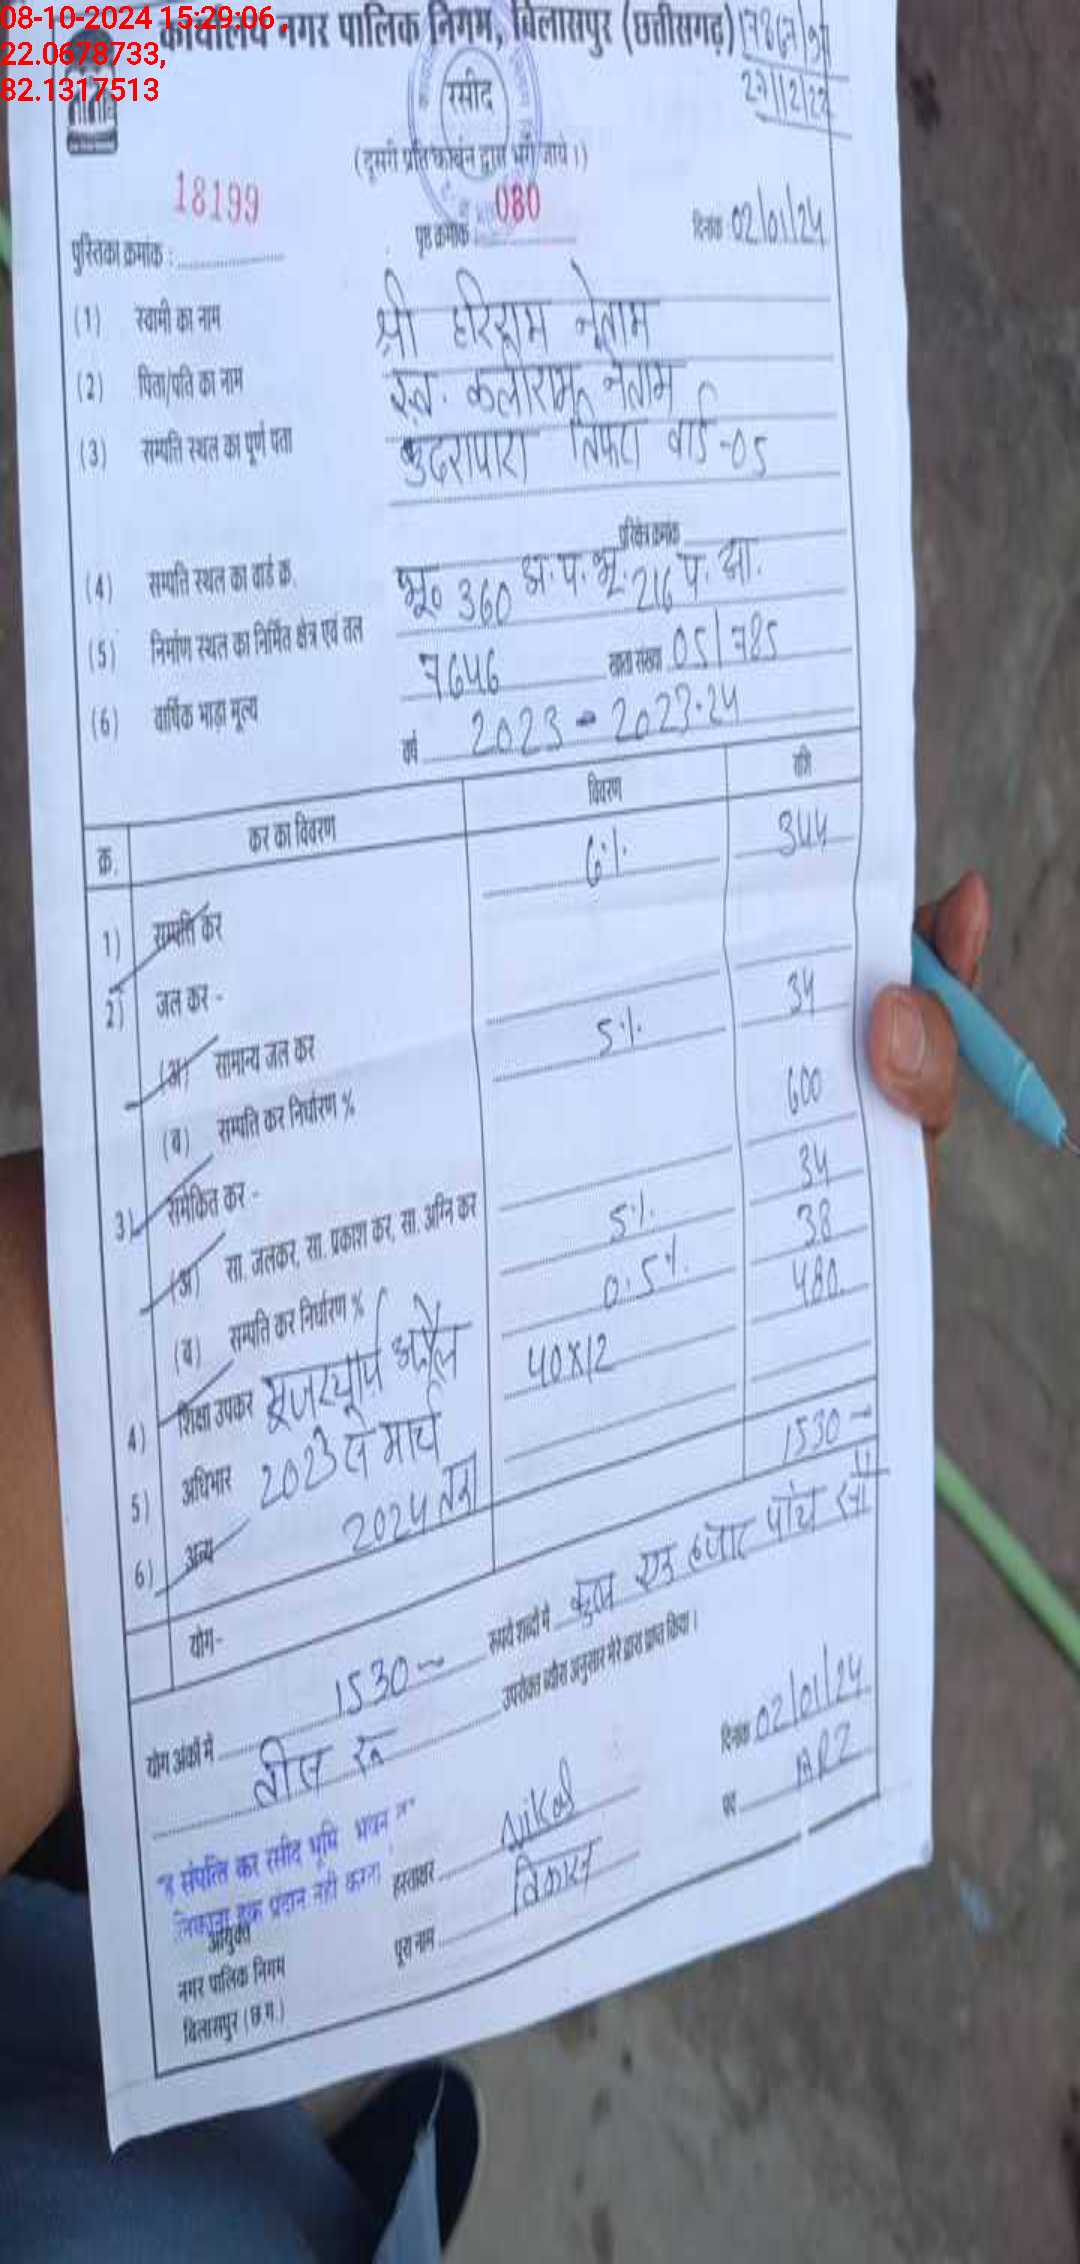 08-10-2024 15:29:06 ,
22.0678733,
82.1317513
कार्यालय नगर पालिक निगम, बिलासपुर (छत्तीसगढ़)
27/12/22
रसीद
(दूसरी प्रति कार्बन द्वारा भरी जाये।)
18199
080
पुस्तिका क्रमांक :
पृष्ठ क्रमांक
दिनांक 02/01/24
(1) स्वामी का नाम श्री हरिराम नेताम
(2) पिता/पति का नाम स्व. कलीराम नेताम
(3) सम्पति स्थल का पूर्ण पता कुदरापारा तिफरा वार्ड-05
परिक्षेत्र क्रमांक
(4) सम्पति स्थल का वार्ड क्र.
भू० 360 अ.प.भू. 216 प. आ.
(5) निर्माण स्थल का निर्मित क्षेत्र एवं तल
7646 खाता संख्या 05/785
(6) वार्षिक भाड़ा मूल्य
वर्ष 2023 - 2023-24
क्र. कर का विवरण विवरण राशि
1) सम्पति कर 6% 344
2) जल कर -
(अ) सामान्य जल कर
(ब) सम्पति कर निर्धारण % 5% 34
3) समेकित कर -
(अ) सा. जलकर, सा. प्रकाश कर, सा. अग्नि कर 600
(ब) सम्पति कर निर्धारण % 5% 34
4) शिक्षा उपकर 0.5% 38
यूजरचार्ज अप्रैल 40x12 480
5) अधिभार 2023 से मार्च
6) अन्य 2024 तक
योग- 1530
योग अंकों में 1530 रूपये शब्दों में कुल एक हजार पांच सौ
तीस रू उपरोक्त ब्यौरा अनुसार मेरे द्वारा प्राप्त किया।
दिनांक 02/01/24
संपत्ति कर रसीद भूमि भवन
हक प्रदान नही करता
हस्ताक्षर Vikas
पद ARI
पूरा नाम विकास
आयुक्त
नगर पालिक निगम
बिलासपुर (छ.ग.)